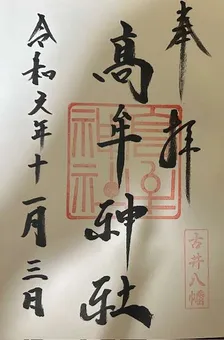 奉拝
高牟神社
令和元年十一月三日
古井八幡